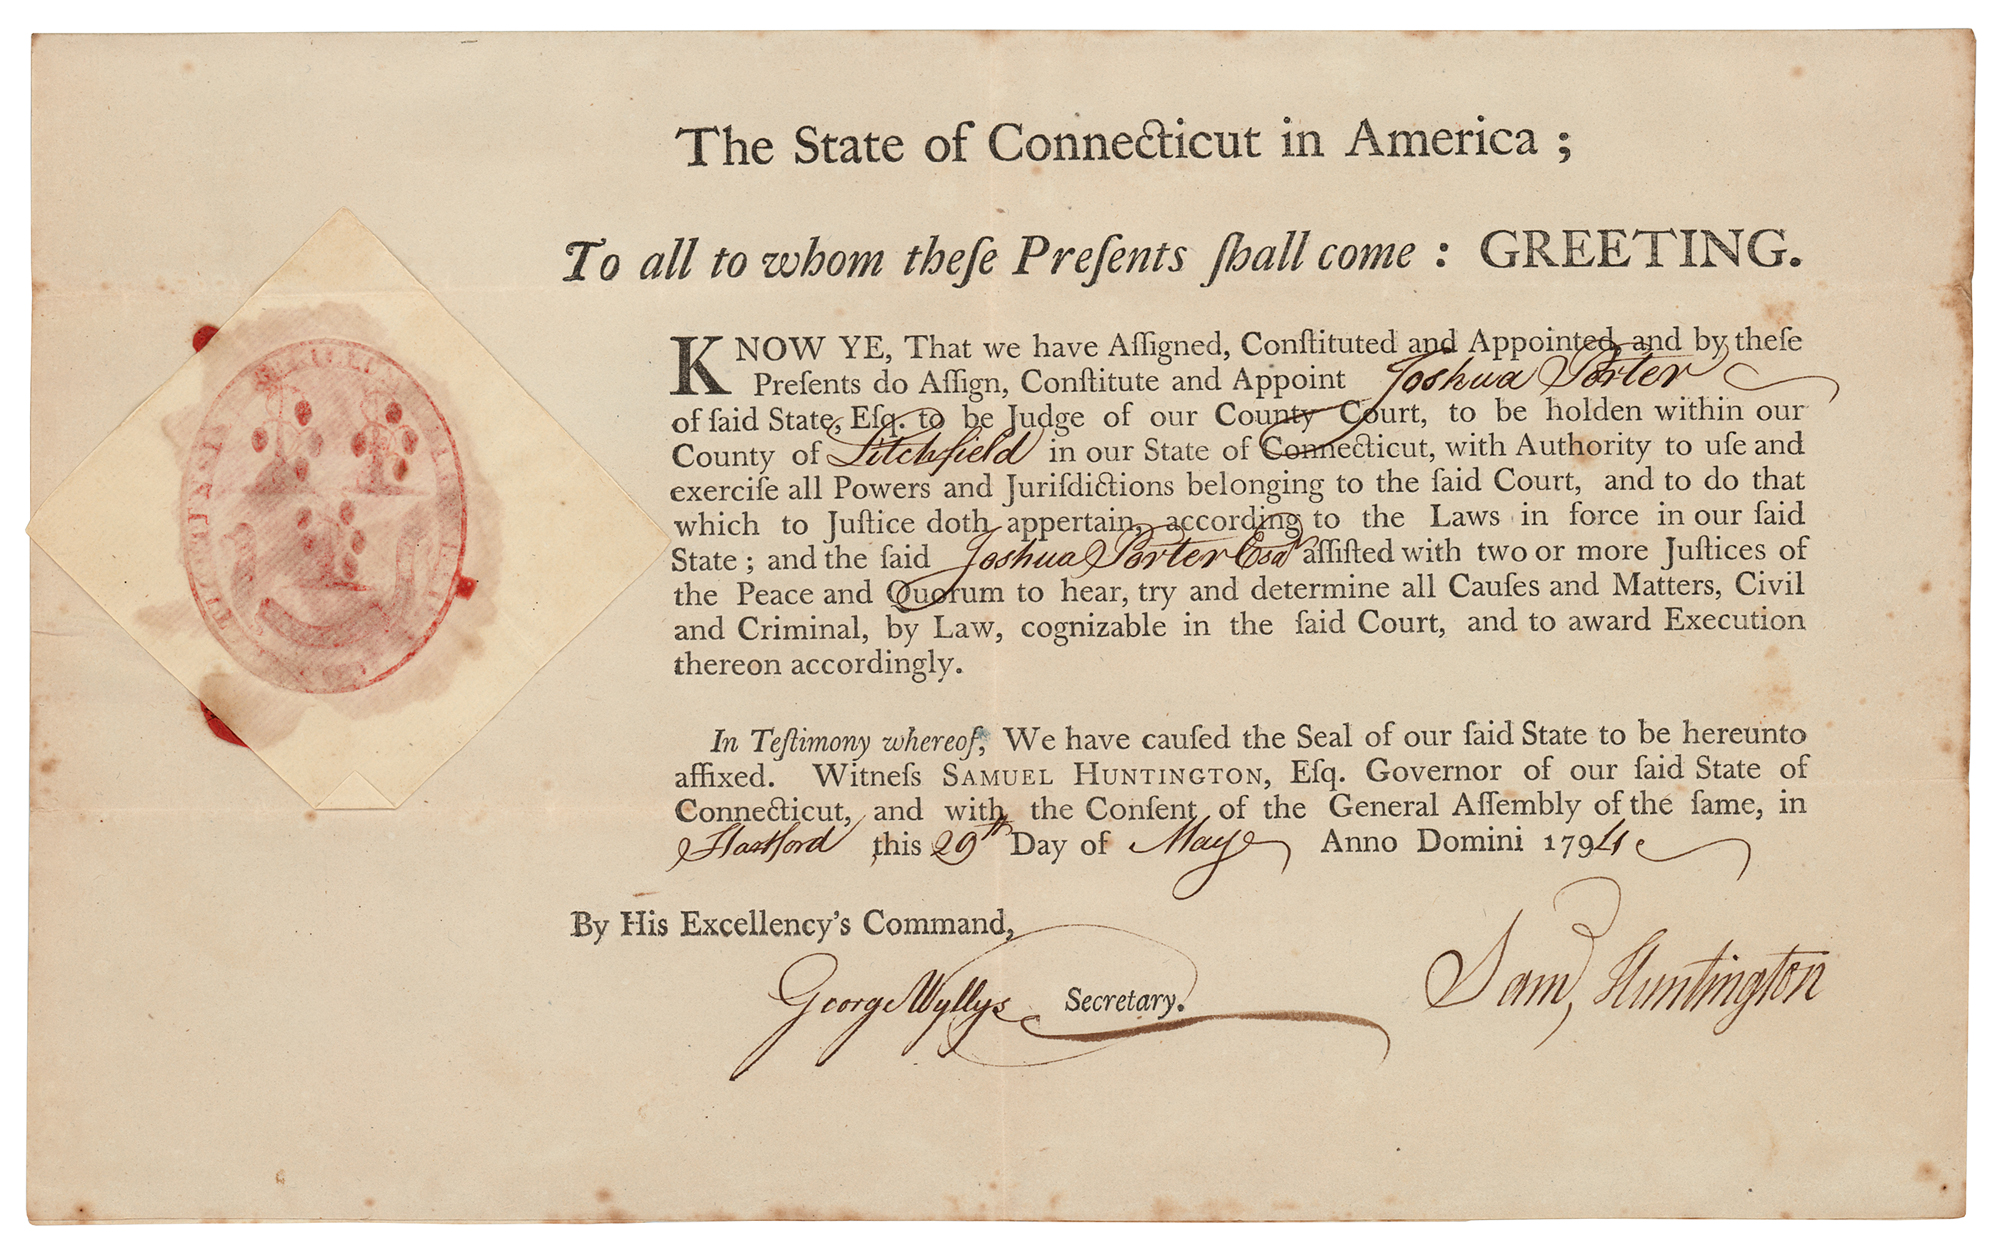 The State of Connecticut in America ;
To all to whom theſe Preſents ſhall come : GREETING.
KNOW YE, That we have Aſſigned, Conſtituted and Appointed, and by theſe
Preſents do Aſſign, Conſtitute and Appoint Joshua Porter
of ſaid State, Eſq. to be Judge of our County Court, to be holden within our
County of Litchfield in our State of Connecticut, with Authority to uſe and
exerciſe all Powers and Juriſdictions belonging to the ſaid Court, and to do that
which to Juſtice doth appertain, according to the Laws in force in our ſaid
State ; and the ſaid Joshua Porter Esqr aſſiſted with two or more Juſtices of
the Peace and Quorum to hear, try and determine all Cauſes and Matters, Civil
and Criminal, by Law, cognizable in the ſaid Court, and to award Execution
thereon accordingly.
In Teſtimony whereof, We have cauſed the Seal of our ſaid State to be hereunto
affixed. Witneſs SAMUEL HUNTINGTON, Eſq. Governor of our ſaid State of
Connecticut, and with the Conſent of the General Aſſembly of the ſame, in
Hartford this 29th Day of May Anno Domini 1794
By His Excellency's Command,
George Wyllys Secretary.
Sam, Huntington